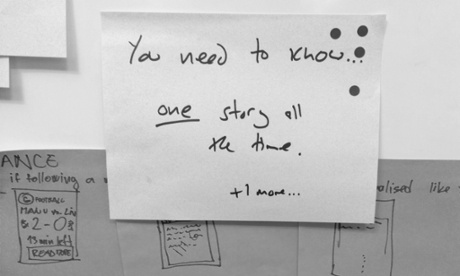 You need to know...
one story all
the time.
+1 more...
ANCE
if following a
alised like
FOOTBALL
MAN U vs. Liv
2-0
15 min left
READ MORE